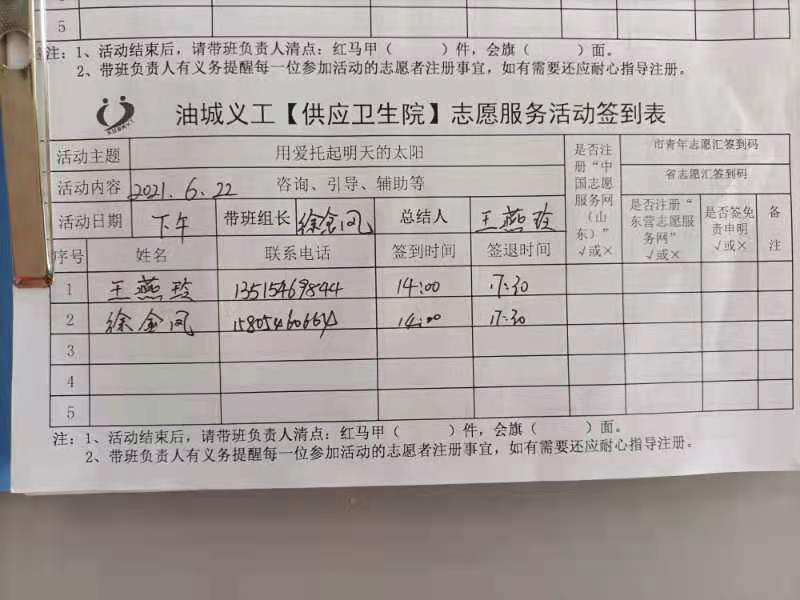 5
注：1、活动结束后，请带班负责人清点：红马甲（　　）件，会旗（　　）面。
2、带班负责人有义务提醒每一位参加活动的志愿者注册事宜，如有需要还应耐心指导注册。
油城义工【供应卫生院】志愿服务活动签到表
活动主题 用爱托起明天的太阳 是否注册“中国志愿服务网（山东）”√或× 市青年志愿汇签到码
活动内容 2021.6.22 咨询、引导、辅助等 省志愿汇签到码
活动日期 下午 带班组长 徐金凤 总结人 王燕玲 是否注册“东营志愿服务网”√或× 是否签免责申明√或× 备注
序号 姓名 联系电话 签到时间 签退时间
1 王燕玲 13515469844 14:00 17:30
2 徐金凤 14:00 17:30
3
4
5
注：1、活动结束后，请带班负责人清点：红马甲（　　）件，会旗（　　）面。
2、带班负责人有义务提醒每一位参加活动的志愿者注册事宜，如有需要还应耐心指导注册。